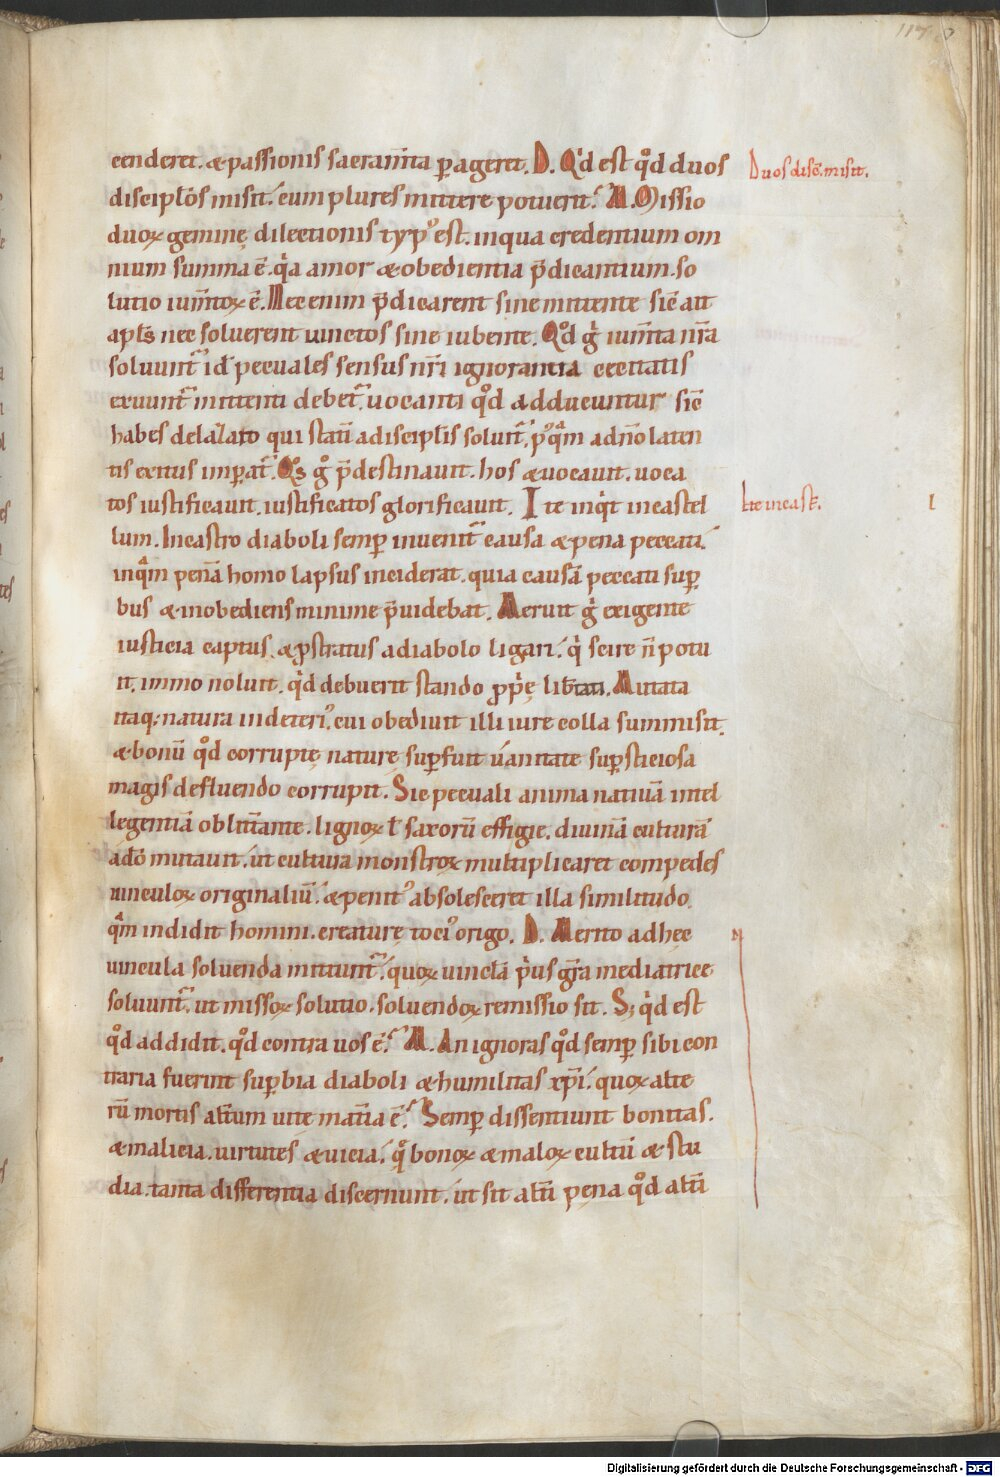 117
cenderet. & passionis sacram̄ta p̲ageret. D. Q'd est qd̊ duos
Duos disc̄. misit.
discipl̄os misit. cum plures mittere potuerit. M. Missio
duoꝝ geminę dilectionis typ᾽ est. in qua credentium om
nium summa ē. q̇a amor & obedientia p̄dicantium. so
lutio ium̄toꝝ ē. Nec enim p̄dicarent sine mittente sic̄ ait
apl̄s nec soluerent uinctos sine iubente. Qd̊ g̊ ium̄ta nr̄a
soluunt᷑ id ̄ pecuales sensus nr̄i ignorantia cecitatis
exuunt᷑ mittenti debet᷑. uocanti qd̊ adducuntur sic̄
habes de lazaro qui statī a discipl̄is soluit᷑. p᾽ qͣm ad n̄o laten
tis exitus imp̲at᷑. Qͦs g̊ p̄destinauit. hos & uocauit. uoca
tos iustificauit. iustificatos glorificauit. Ite inq̇t in castel
Ite in cast̄.
lum. In castro diaboli semp̲ inuenit᷑ causa & pena peccati.
in qͣm penā homo lapsus inciderat. quia causā peccati sup̲
bus & inobediens minime p̄uidebat. Meruit g̊ exigente
iusticia captus. & ꝓstratus a diabolo ligari. q̇ scire n̄ potu
it. immo noluit. q̇d debuerit stando ꝓp̄ę lib̄tati. Mutata
itaq; natura in deteri᾽. cui obediuit illi iure colla summisit.
& bonū qd̊ corruptę naturę sup̲fuit uanitate sup̲sticiosa
magis defluendo corrupit. Sic pecuali anima natiuā intel
legentiā oblit̄ante. lignoꝝ ł saxorū effigie. diuinā culturā
ad̄o mutauit. ut cultura monstroꝝ multiplicaret compedes
uinculoꝝ originaliū. & penit᾽ absolesceret illa similitudo.
qͣm indidit homini. creaturę toci᾽ origo. D. Merito ad hec
uincula soluenda mittunt᷑. quoꝝ uincl̄a p̍us gr̄a mediatrice
soluunt᷑. ut missoꝝ solutio. soluendoꝝ remissio sit. S; q̇d est
qd̊ addidit. qd̊ contra uos ē. M. An ignoras qd̊ semp̲ sibi con
traria fuerint sup̲bia diaboli & humilitas xp̄i. quoꝝ alte
rū mortis alt̄um uite mat̄ia ē. Semp̲ dissentiunt bonitas.
& malicia. uirtutes & uicia. qͥ bonoꝝ & maloꝝ cultū & stu
dia. tanta differentia discernunt. ut sit alt̄i pęna qd̊ alt̄i
Digitalisierung gefördert durch die Deutsche Forschungsgemeinschaft - DFG